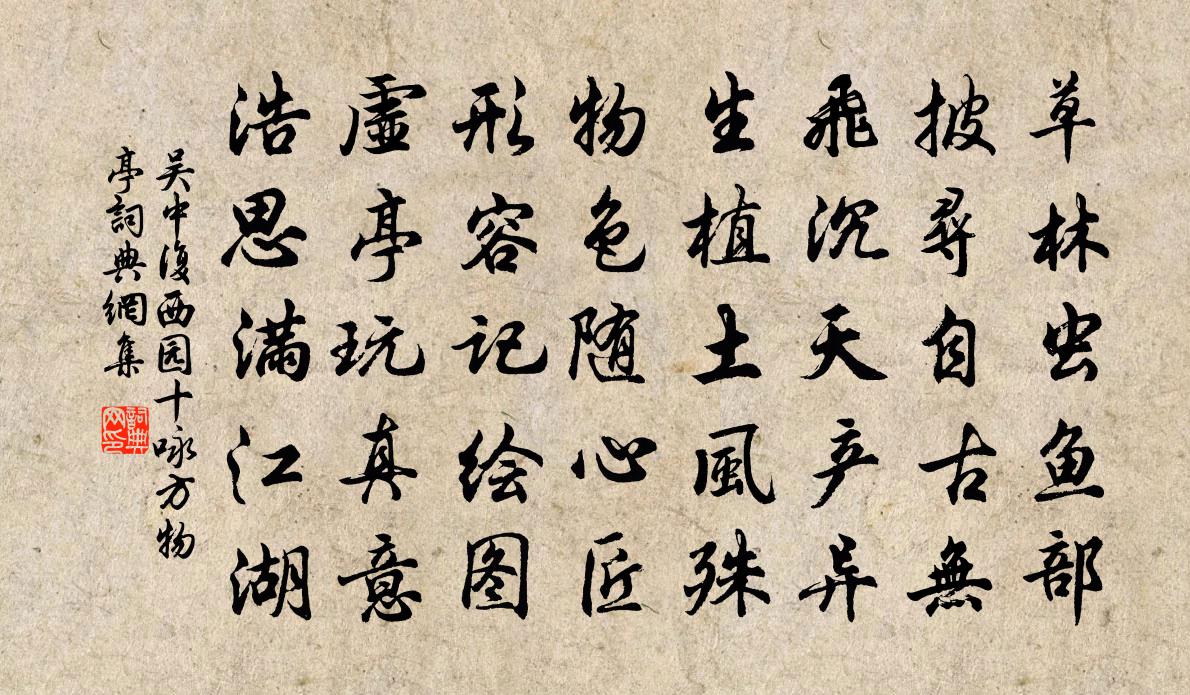 草林虫鱼部
披尋自古無
飛沉天产异
生植土風殊
物色随心匠
形容记绘图
虛亭玩真意
浩思满江湖
吴中復西园十咏方物
亭詞典網集
詞典网印